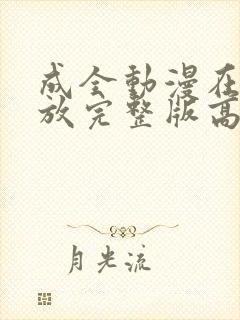 成全動漫在
放完整版高
月光流